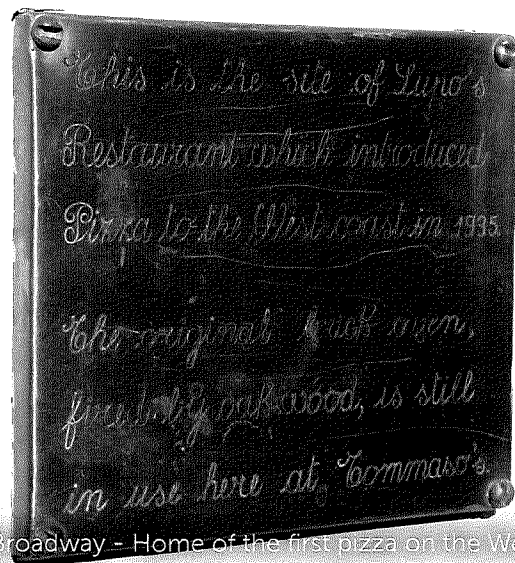 This is the site of Lupo's
Restaurant which introduced
Pizza to the West coast in 1935.
The original brick oven,
fired by oak wood, is still
in use here at Tommaso's.
Broadway - Home of the first pizza on the We